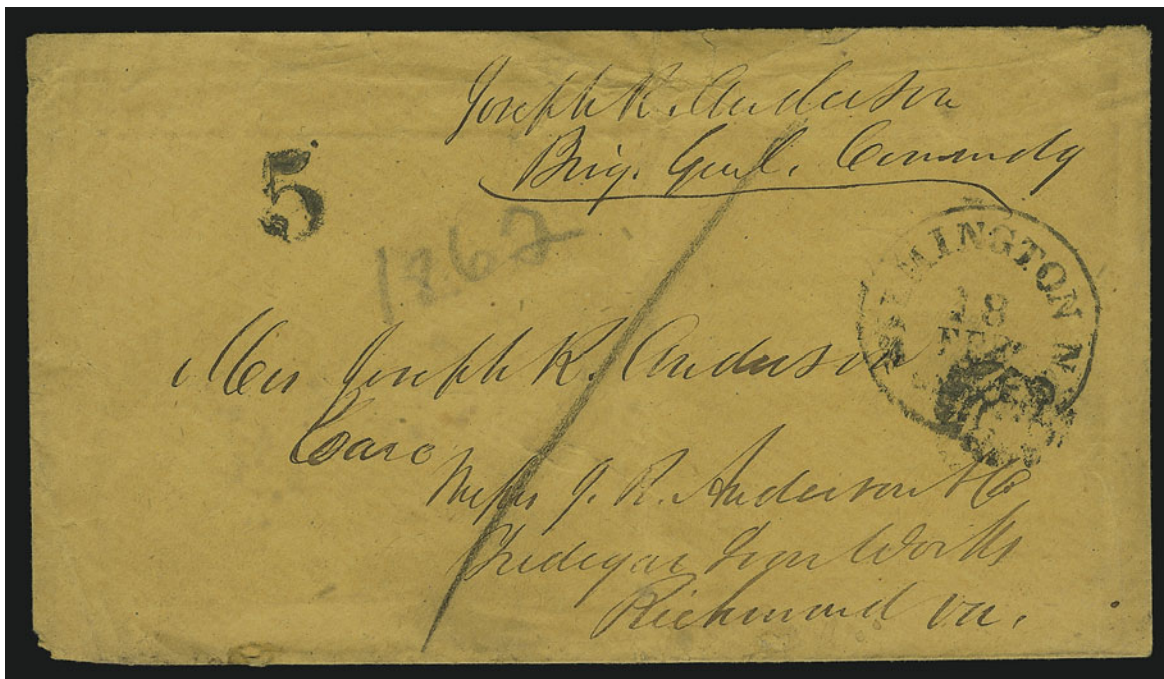 Joseph R. Anderson
Brig. Genl. Comandg
5
1862.
WILMINGTON N
18
FEB
Mrs Joseph R. Anderson
Care
Messrs J. R. Anderson & Co
Tredegar Iron Works
Richmond Va.